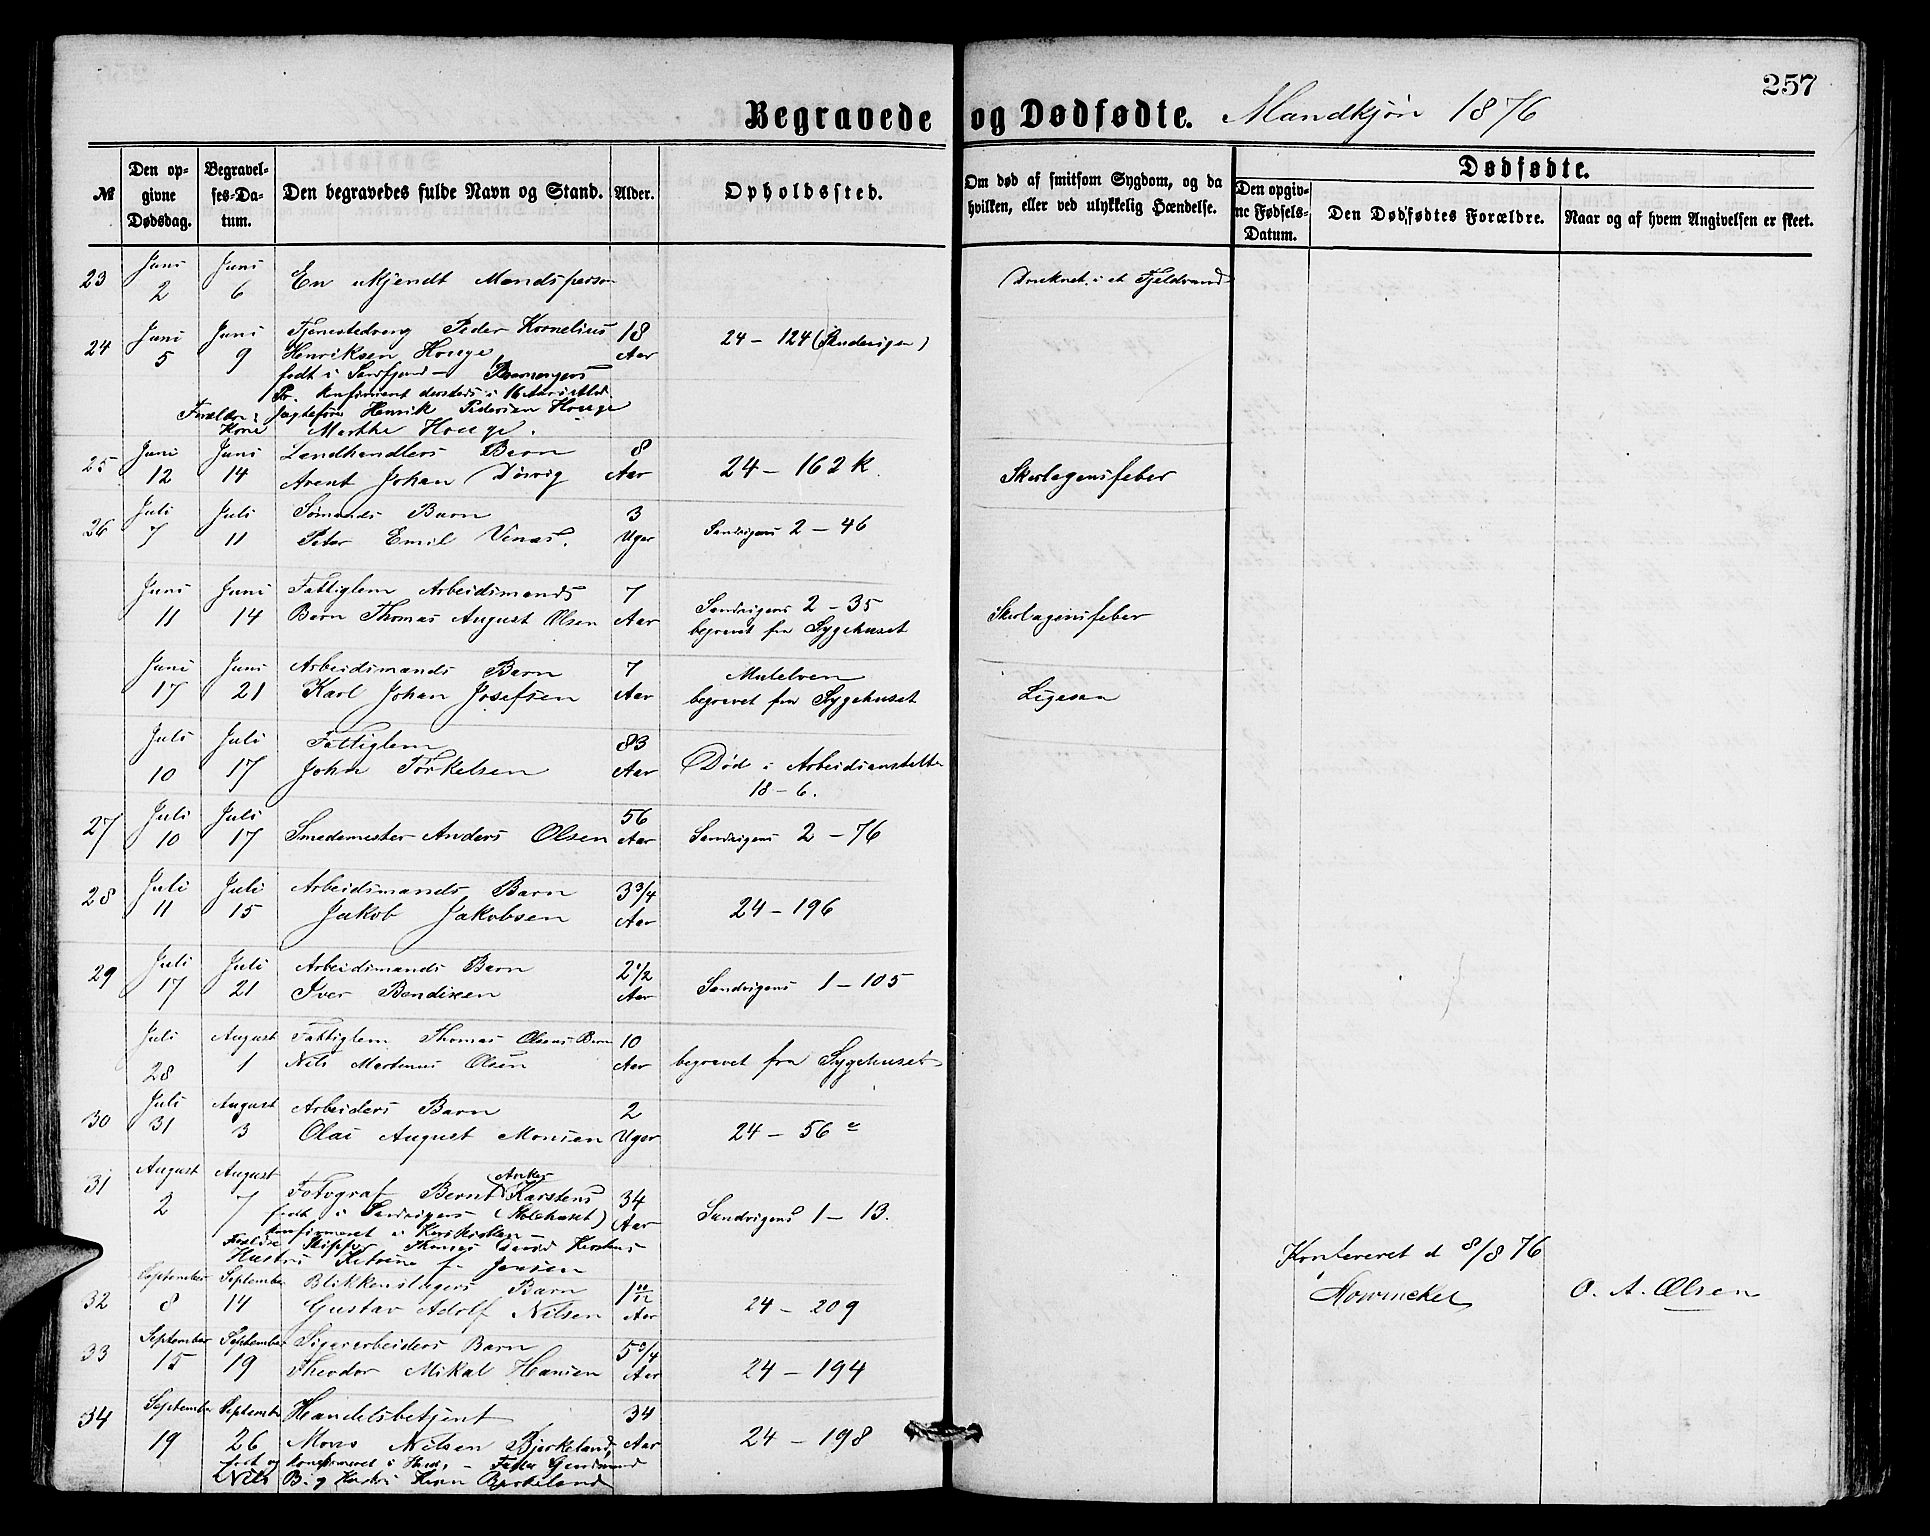 257
Begravede og Dødfødte. Mandkjøn 1876
№
Den opgivne Dødsdag.
Begravelses-Datum.
Den begravedes fulde Navn og Stand.
Alder.
Opholdssted.
Om død af smitsom Sygdom, og da hvilken, eller ved ulykkelig Hændelse.
Dødfødte.
Den opgivne Fødsels-Datum.
Den Dødfødtes Forældre.
Naar og af hvem Angivelsen er skeet.
23 Juni 2 Juni 6 En ukjendt Mandsperson Druknet i et Fjeldvand
24 Juni 5 Juni 9 Tjenestedreng Peder Kornelius 18 Aar 24 – 124
Henriksen Houge
født i
Pr. Konfirmeret dersteds i 16 Aars Ald.
Forældre: Jagtefører Henrik Pedersen Houge
Kone Marthe Houge.
25 Juni 12 Juni 14 Landhandlers Barn 8 Aar 24 – 162 k. Skarlagensfeber
Arent Johan
26 Juli 7 Juli 11 Sømands Barn 3 Uger Sandvigens 2 – 46
Peter Emil
Juni 11 Juni 14 Fattiglem Arbeidsmands 7 Aar Sandvigens 2 – 35 Skarlagensfeber
Barn Thomas August Olsen begravet fra Sygehuset
Juni 17 Juni 21 Arbeidsmands Barn 7 Aar Mulelven Ligesaa
Karl Johan Josefsen begravet fra Sygehuset
Juli 10 Juli 17 Fattiglem 83 Aar Død i Arbeidsanstalten
John Torkelsen 18 – 6.
27 Juli 10 Juli 17 Smedemester Anders Olsen 56 Aar Sandvigens 2 – 76
28 Juli 11 Juli 15 Arbeidsmands Barn 3 3/4 Aar 24 – 196
Jakob Jakobsen
29 Juli 17 Juli 21 Arbeidsmands Barn 2 1/2 Aar Sandvigens 1 – 105
Iver Bendixen
Juli 28 August 1 Fattiglem Thomas Olsens Barn 10 Aar begravet fra Sygehuset
Nils Martinus Olsen
30 Juli 31 August 3 Arbeiders Barn 2 Uger 24 – 56 a
Olai August Monsen
31 August 2 August 7 Fotograf Bernt Anker Karstens 34 Aar Sandvigens 1 – 13.
født i Sandvigens
konfirmeret i Korskirken –
Forældre Skipper Thomas David Karstens
Hustru Katrine f. Jensen
Konfereret d 8/8 76
Howinckel
O. A. Olsen
32 September 8 September 14 Blikkenslagers Barn 1 11/12 Aar 24 – 209
Gustav Adolf Nilsen
33 September 15 September 19 Sigararbeiders Barn 5 3/4 Aar 24 – 194
Theodor Mikal Hansen
34 September 19 September 26 Handelsbetjent 34 Aar 24 – 198
Mons Nilsen Bjerkeland,
født og konfirmeret i – Fader Gaardmand
Nils B. og Hustru Bjerkeland